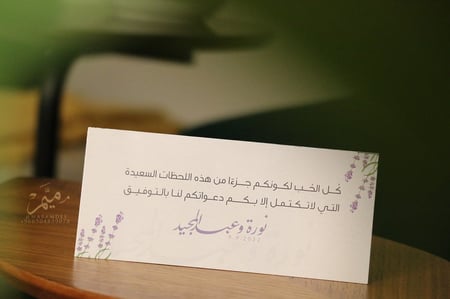 كل الحب لكونكم جزءًا من هذه اللحظات السعيدة
التي لا تكتمل إلا بكم دعواتكم لنا بالتوفيق
نورة وعبدالمجيد
ميم